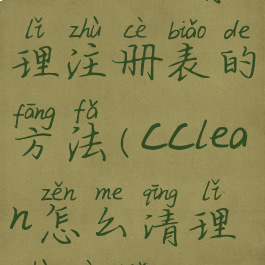 lǐ zhù cè biǎo de
理注册表的
fāng fǎ
方法(CClea
zěn me qīng lǐ
n怎么清理